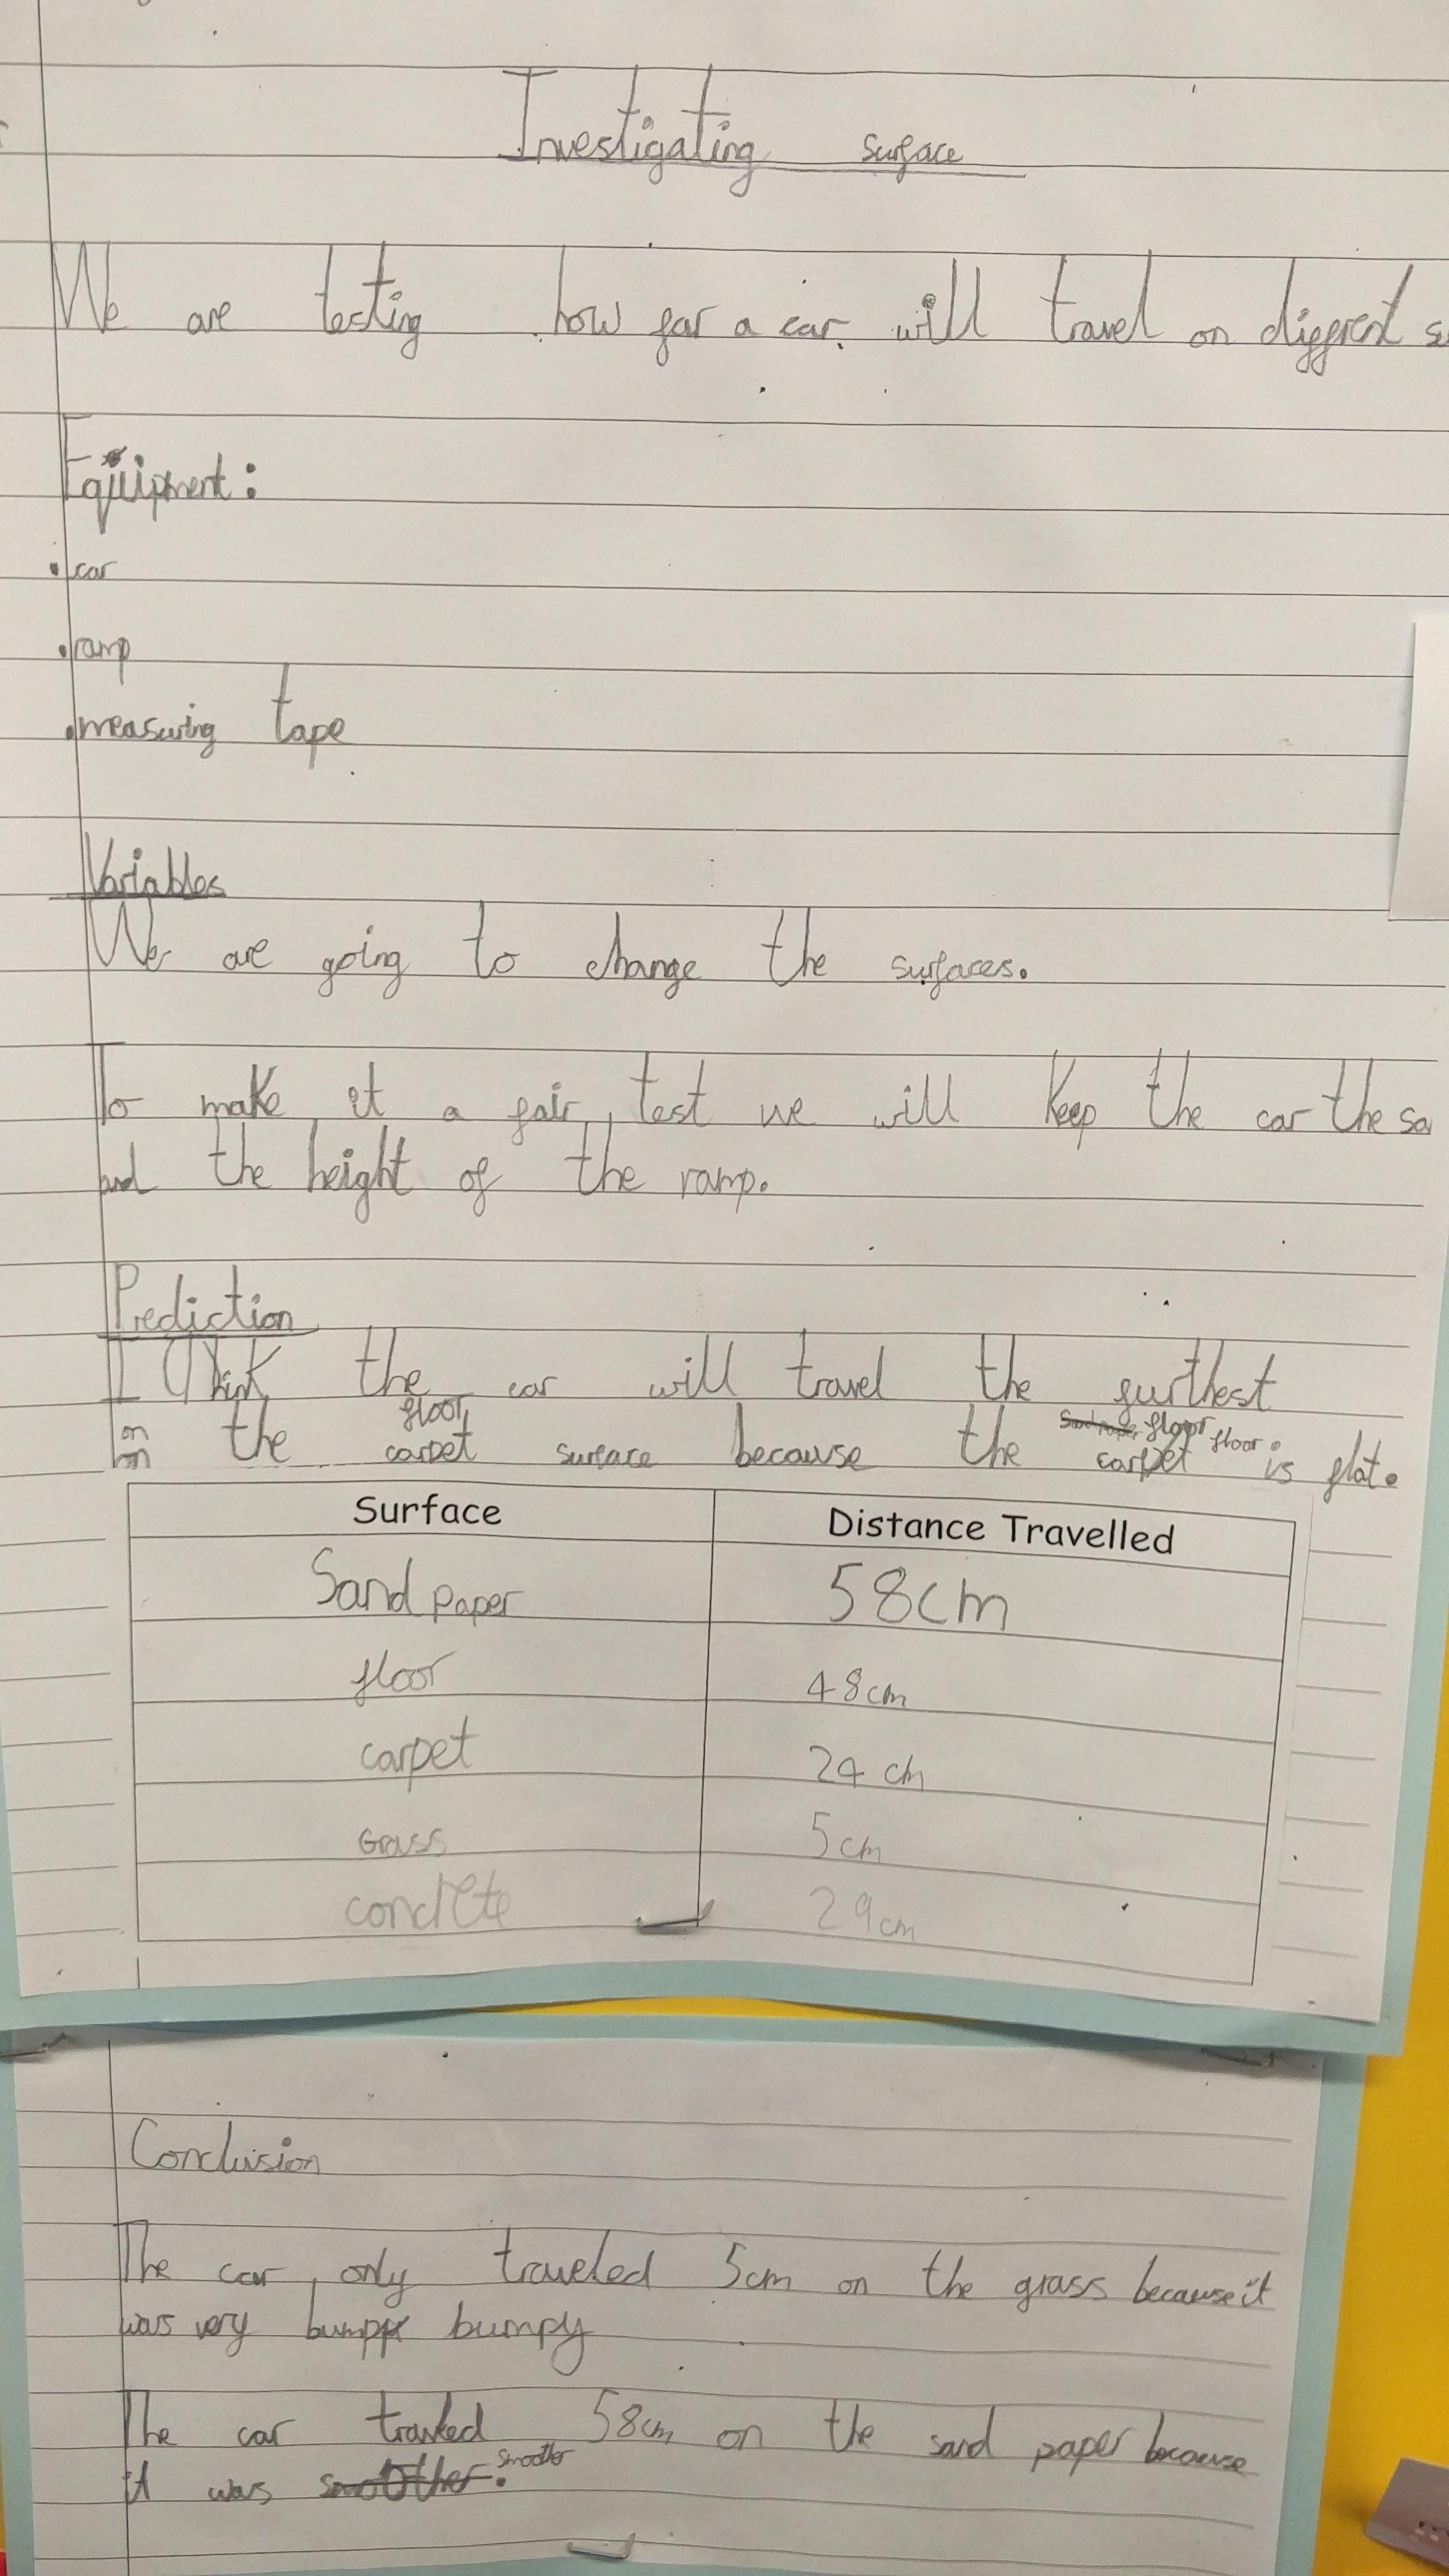 Investigating surface
We are testing how far a car will travel on diffrent s
Equipment:
• car
• ramp
• measuring tape
Variables
We are going to change the surfaces.
To make it a fair, test we will keep the car the sa
and the height of the ramp.
Prediction
I Think the car will travel the furthest
on floor floor floor
on the carpet surface because the carpet is flat.
Surface Distance Travelled
Sand paper 58cm
floor 48cm
carpet 24 cm
Grass 5cm
concrete 29cm
Conclusion
The car, only traveled 5cm on the grass because it
was very bumpy
The car traveled 58cm on the sand paper because
it was smoother.